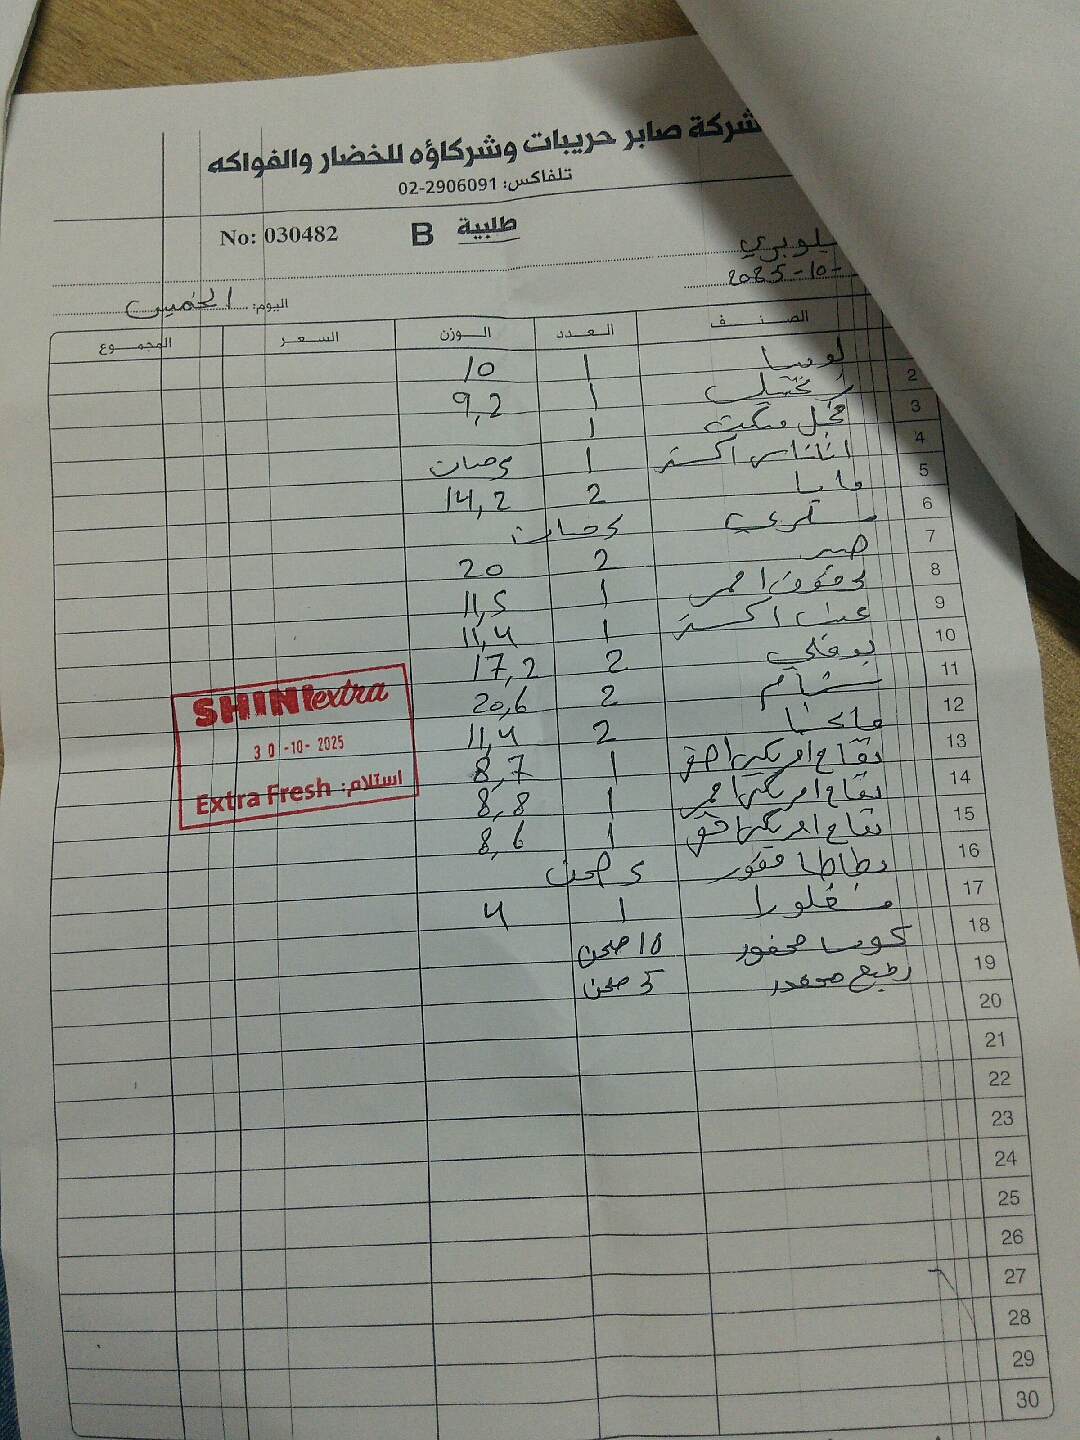 شركة صابر حريبات وشركاؤه للخضار والفواكه
تلفاكس: 02-2906091
طلبية B No: 030482
2025-10-
اليوم: الخميس
الصنف العدد الوزن السعر المجموع
لوبيا 1 10
2 زنجبيل 1 9,2
3 فجل 1
4 اناناس اكسترا 1 حبات
5 بابا 2 14,2
6 حبات
7 صبر 2 20
8 احمر 1 11,5
9 عنب اكسترا 1 11,4
10 بوملي 2 17,2
11 شمام 2 20,6
12 مانجا 2 11,4
13 تفاح امريكي اصفر 1 8,7
14 تفاح امريكي احمر 1 8,8
15 تفاح امريكي 1 8,6
16 بطاطا محفور صحن
17 1 4
18 كوسا محفور 10 صحن
19 5 صحن
20
21
22
23
24
25
26
27
28
29
30
SHINI extra
30-10-2025
استلام: Extra Fresh